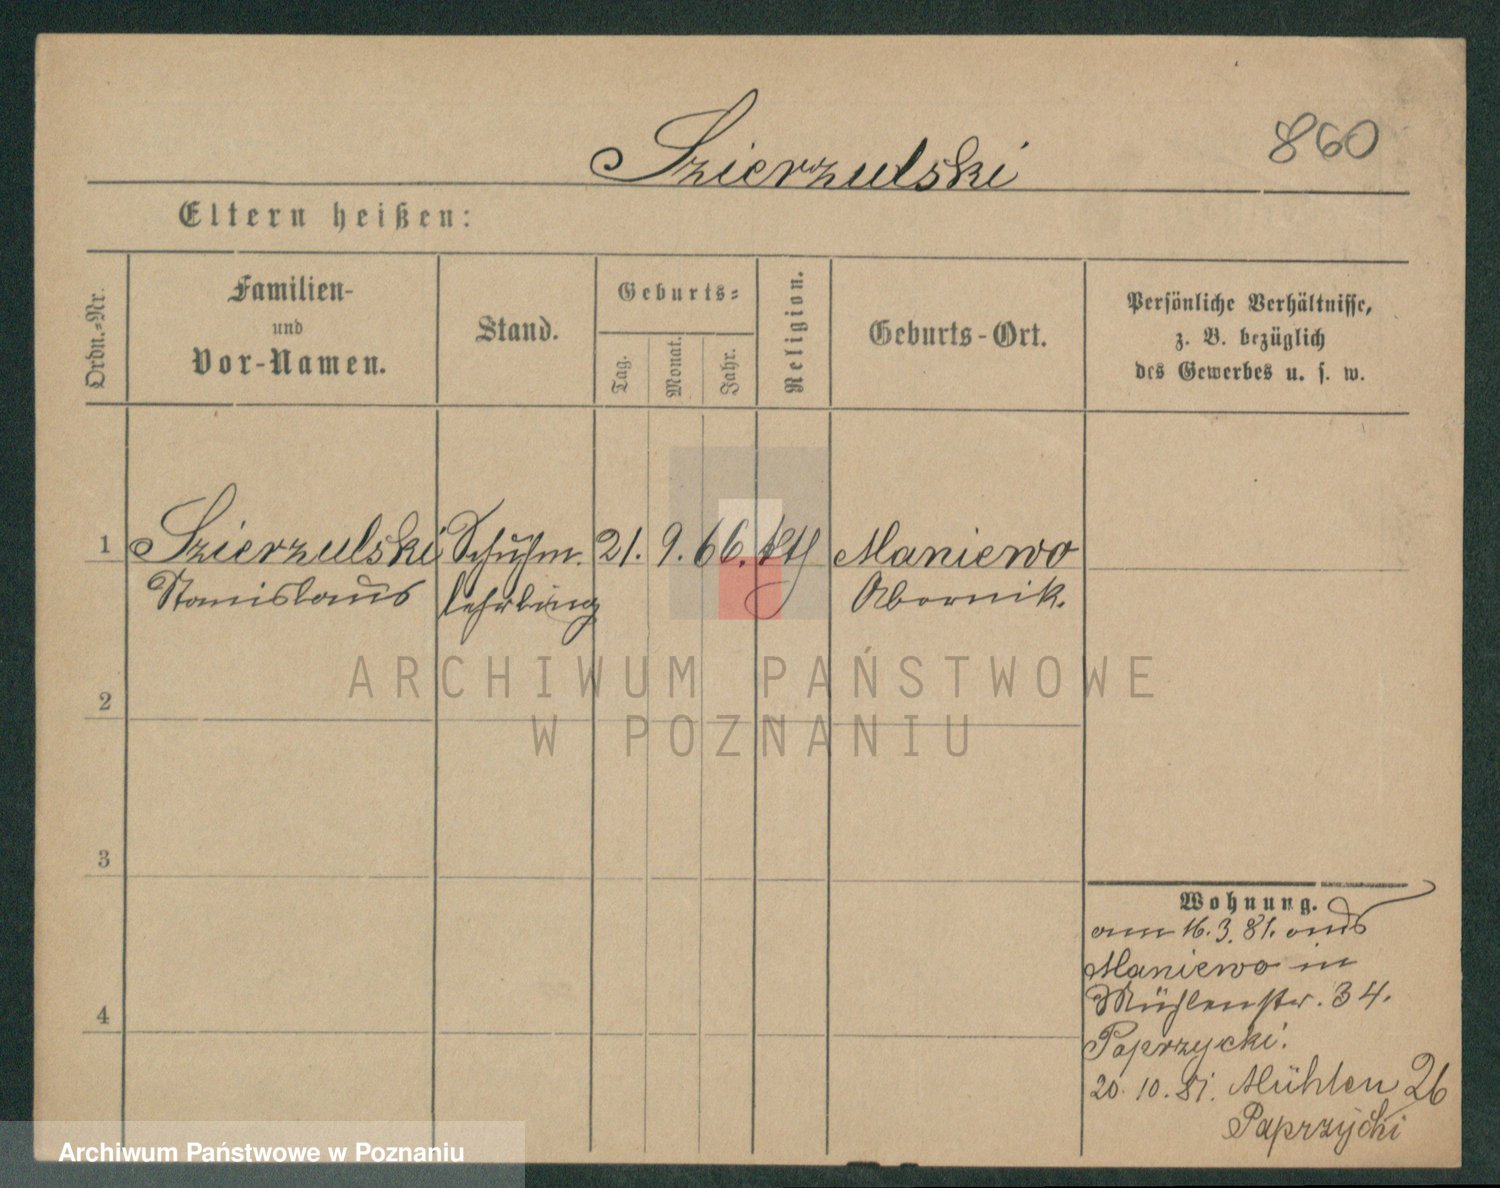 860
Szierzulski
Eltern heißen:
Ordn.-Nr.
Familien-
und
Vor-Namen.
Stand.
Geburts-
Tag.
Monat.
Jahr.
Religion.
Geburts-Ort.
Persönliche Verhältnisse,
z. B. bezüglich
des Gewerbes u. s. w.
1
Szierzulski Schuhm. 21. 9. 66. kth Maniewo
Stanislaus lehrling Obornik.
2
3
4
Wohnung.
am 16.3.81. aus
Maniewo in
Mühlenstr. 34.
Paprzycki.
20.10.81. Mühlen 26
Paprzycki
ARCHIWUM PAŃSTWOWE
W POZNANIU
Archiwum Państwowe w Poznaniu